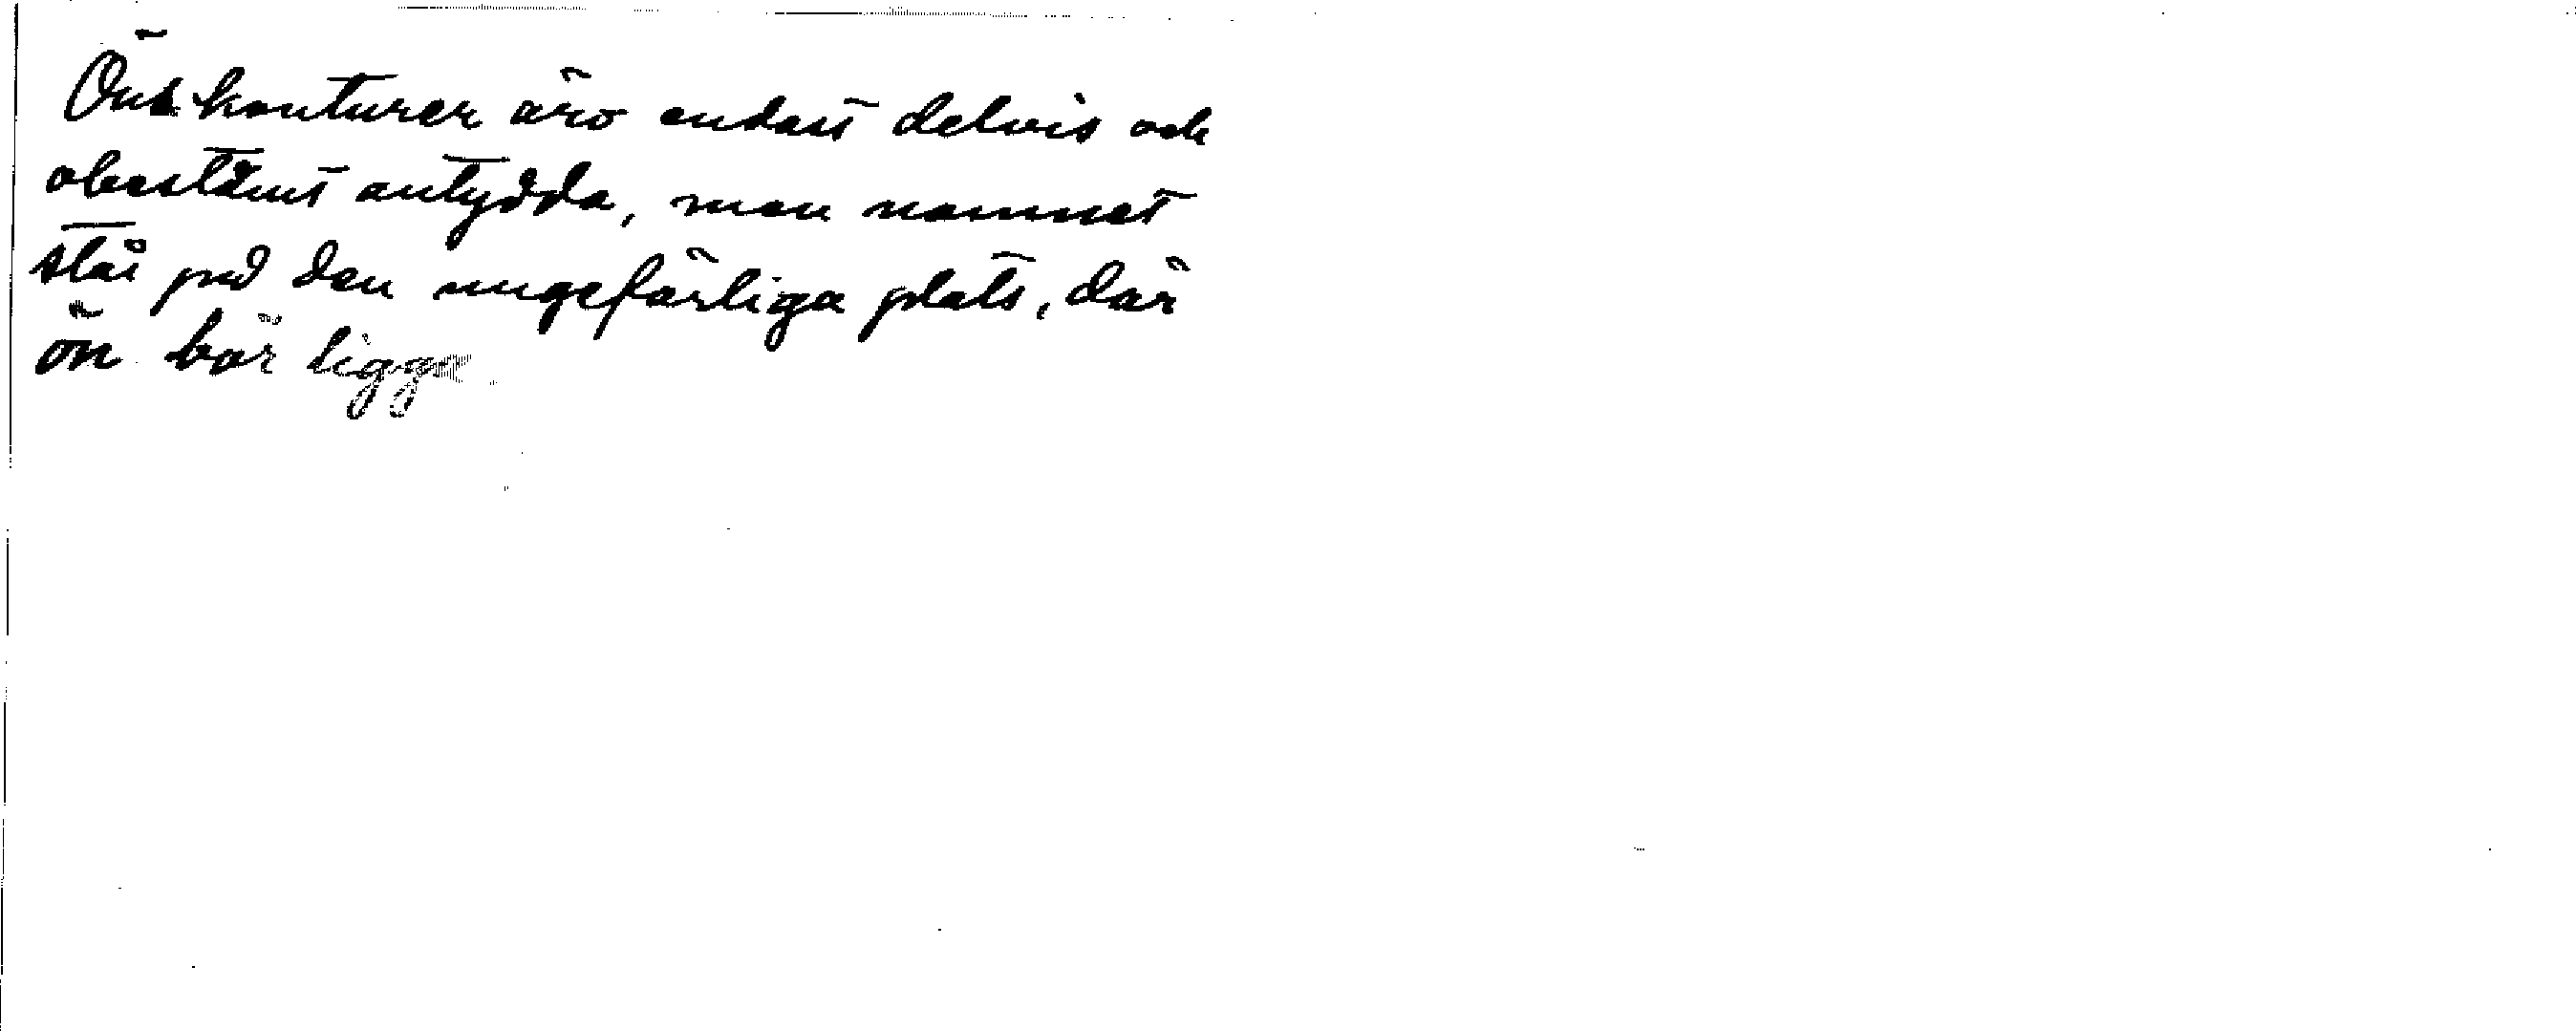 Öns konturer äro endast delvis och
obestämt antydda, men namnet
står på den ungefärliga plats, där
ön bör ligga.